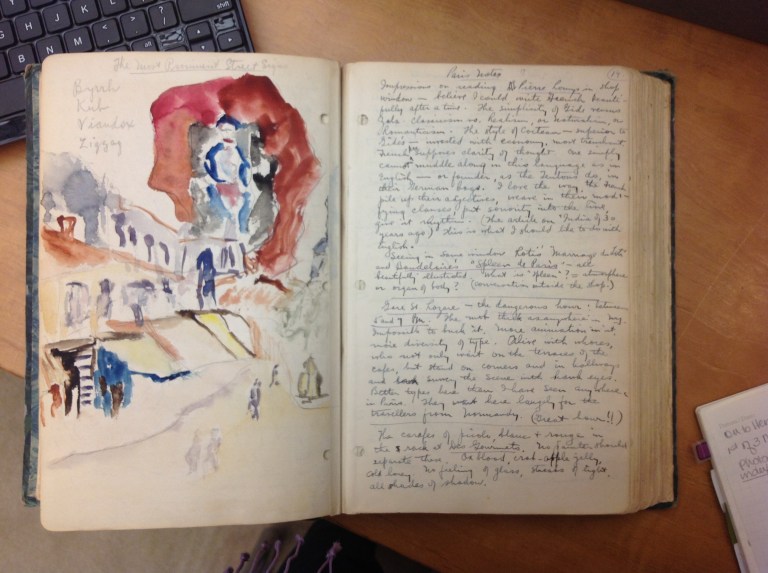 The Most Prominent Street Signs
Byrrh
Kub
Viandox
Zigzag
Paris Notes
Impressions on reading Pierre Louys in shop
window - believe I could write French beauti-
fully after a time. The simplicity of Gide versus
Zola. Classicism vs. Realism, or naturalism, or
Romanticism. The style of Cocteau - superior to
Gide's - invested with economy, most trenchant
French. Suppose clarity of thought. One simply
cannot muddle along in this language as in
English - or founder, as the Teutons do, in
their German bogs. I love the way the French
pile up their adjectives, weave in their modi-
fying clauses, put sonority into the line
give it rhythm. (The article on "India of 30
years ago) This is what I should like to do with
English.
Seeing in same window Loti's "Marriage
and Baudelaire's "Spleen de Paris" -
beautifully illustrated. What is "spleen"? a atmosphere
or organ of body? (conversation outside the shop.)
Gare St. Lazare - the dangerous hour: between
5 and 7 PM. The mob thick everywhere -
impossible to buck it. More animation in it,
more diversity of type. Alive with whores,
who not only wait on the terraces of the
cafes, but stand on corners and in hallways
and survey the scene with hawk eyes.
Better types here than I have seen anywhere
in Paris. They must have laughs for the
travellers from Normandy. (Great hour!!)
The carafes of pinard, blanc & rouge in
the rack at Des Gourmets. No painter should
separate them. Ox blood, crab-apple jelly,
No feeling of glass, stacks of light,
all shades of shadow.